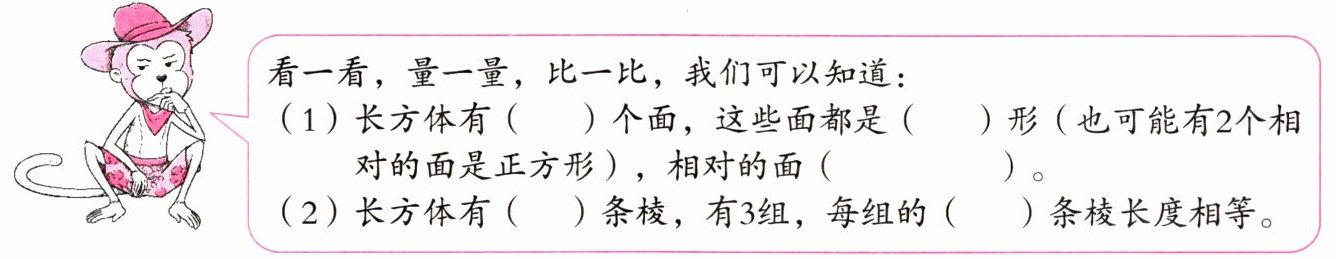 看一看，量一量，比一比，我们可以知道：
（1）长方体有（　　）个面，这些面都是（　　）形（也可能有2个相
对的面是正方形），相对的面（　　　　　　）。
（2）长方体有（　　）条棱，有3组，每组的（　　）条棱长度相等。